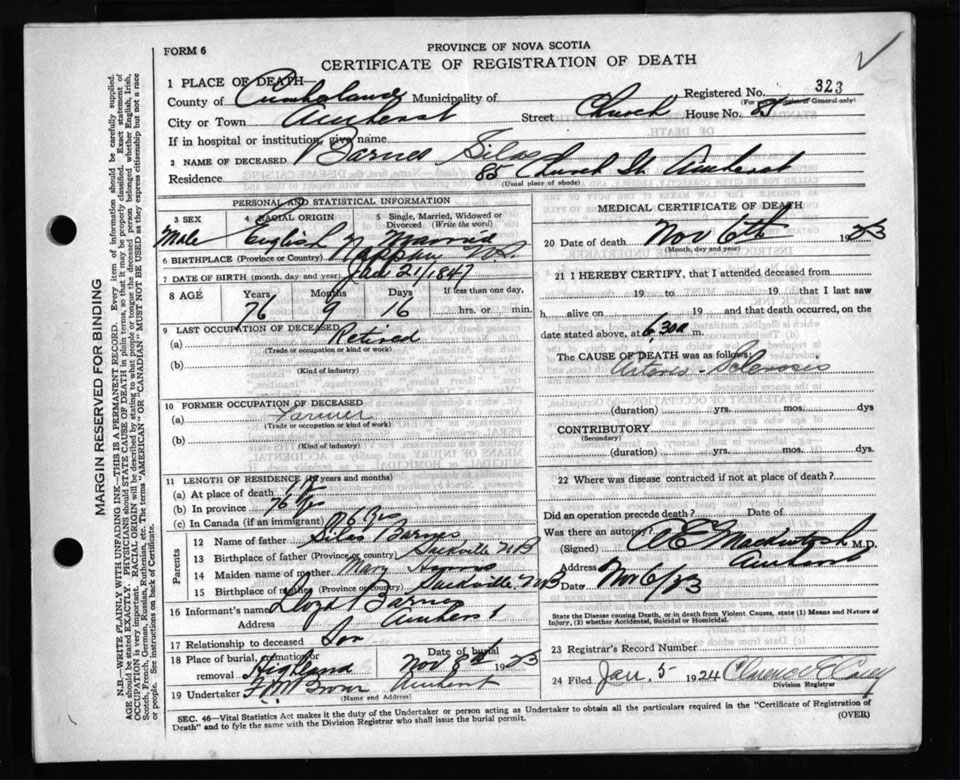 FORM 6
PROVINCE OF NOVA SCOTIA
CERTIFICATE OF REGISTRATION OF DEATH
1 PLACE OF DEATH—
Registered No. 323
(For use of Registrar General only)
County of Cumberland Municipality of
City or Town Amherst Street Church House No. 85
If in hospital or institution, give name
2 NAME OF DECEASED Barnes Silas
Residence 85 Church St Amherst
(Usual place of abode)
PERSONAL AND STATISTICAL INFORMATION
3 SEX Male
4 RACIAL ORIGIN English
5 Single, Married, Widowed or Divorced (Write the word) Married
6 BIRTHPLACE (Province or Country) Nappan N.S.
7 DATE OF BIRTH (month, day and year) 21/1847
8 AGE Years 76 Months 9 Days 16 If less than one day, hrs. or min.
9 LAST OCCUPATION OF DECEASED
(a) Retired
(Trade or occupation or kind or work)
(b)
(Kind of industry)
10 FORMER OCCUPATION OF DECEASED
(a) Farmer
(Trade or occupation or kind or work)
(b)
(Kind of industry)
11 LENGTH OF RESIDENCE (In years and months)
(a) At place of death
(b) In province 76
(c) In Canada (if an immigrant) 76 yrs
Parents
12 Name of father Silas Barnes
13 Birthplace of father (Province or country) Sackville NB
14 Maiden name of mother Mary
15 Birthplace of mother (Province or country) Sackville NB
16 Informant's name Barnes
Address Amherst
17 Relationship to deceased Son
18 Place of burial, cremation or removal Highland Date of burial Nov 8th 1923
19 Undertaker Brown Amherst
(Name and Address)
MEDICAL CERTIFICATE OF DEATH
20 Date of death Nov 6th 1923
(Month, day and year)
21 I HEREBY CERTIFY, that I attended deceased from
19 to 19 that I last saw
h alive on 19 and that death occurred, on the
date stated above, at 6.30a m.
The CAUSE OF DEATH was as follows:
Arterio-Sclerosis
(duration) yrs. mos. dys
CONTRIBUTORY
(Secondary)
(duration) yrs. mos. dys
22 Where was disease contracted if not at place of death?
Did an operation precede death? Date of
Was there an autopsy?
(Signed) Mackintosh M.D.
Amherst
Date Nov 6/23
State the Disease causing Death, or in death from Violent Causes, state (1) Means and Nature of
Injury, (2) whether Accidental, Suicidal or Homicidal.
23 Registrar's Record Number
24 Filed Jan. 5 1924 Clarence E Casey
Division Registrar
SEC. 46—Vital Statistics Act makes it the duty of the Undertaker or person acting as Undertaker to obtain all the particulars required in the "Certificate of Registration of
Death" and to fyle the same with the Division Registrar who shall issue the burial permit.
(OVER)
MARGIN RESERVED FOR BINDING
N.B.—WRITE PLAINLY WITH UNFADING INK—THIS IS A PERMANENT RECORD. Every item of information should be carefully supplied.
AGE should be stated EXACTLY. PHYSICIANS should STATE CAUSE OF DEATH in plain terms, so that it may be properly classified. Exact statement of
OCCUPATION is very important. RACIAL ORIGIN will be described by stating to what people or tongue the deceased person belonged whether English, Irish,
Scotch, French, German, Russian, Ruthenian, etc. The terms "AMERICAN" OR "CANADIAN" MUST NOT BE USED as they express citizenship but not a race
or people. See instructions on back of Certificate.